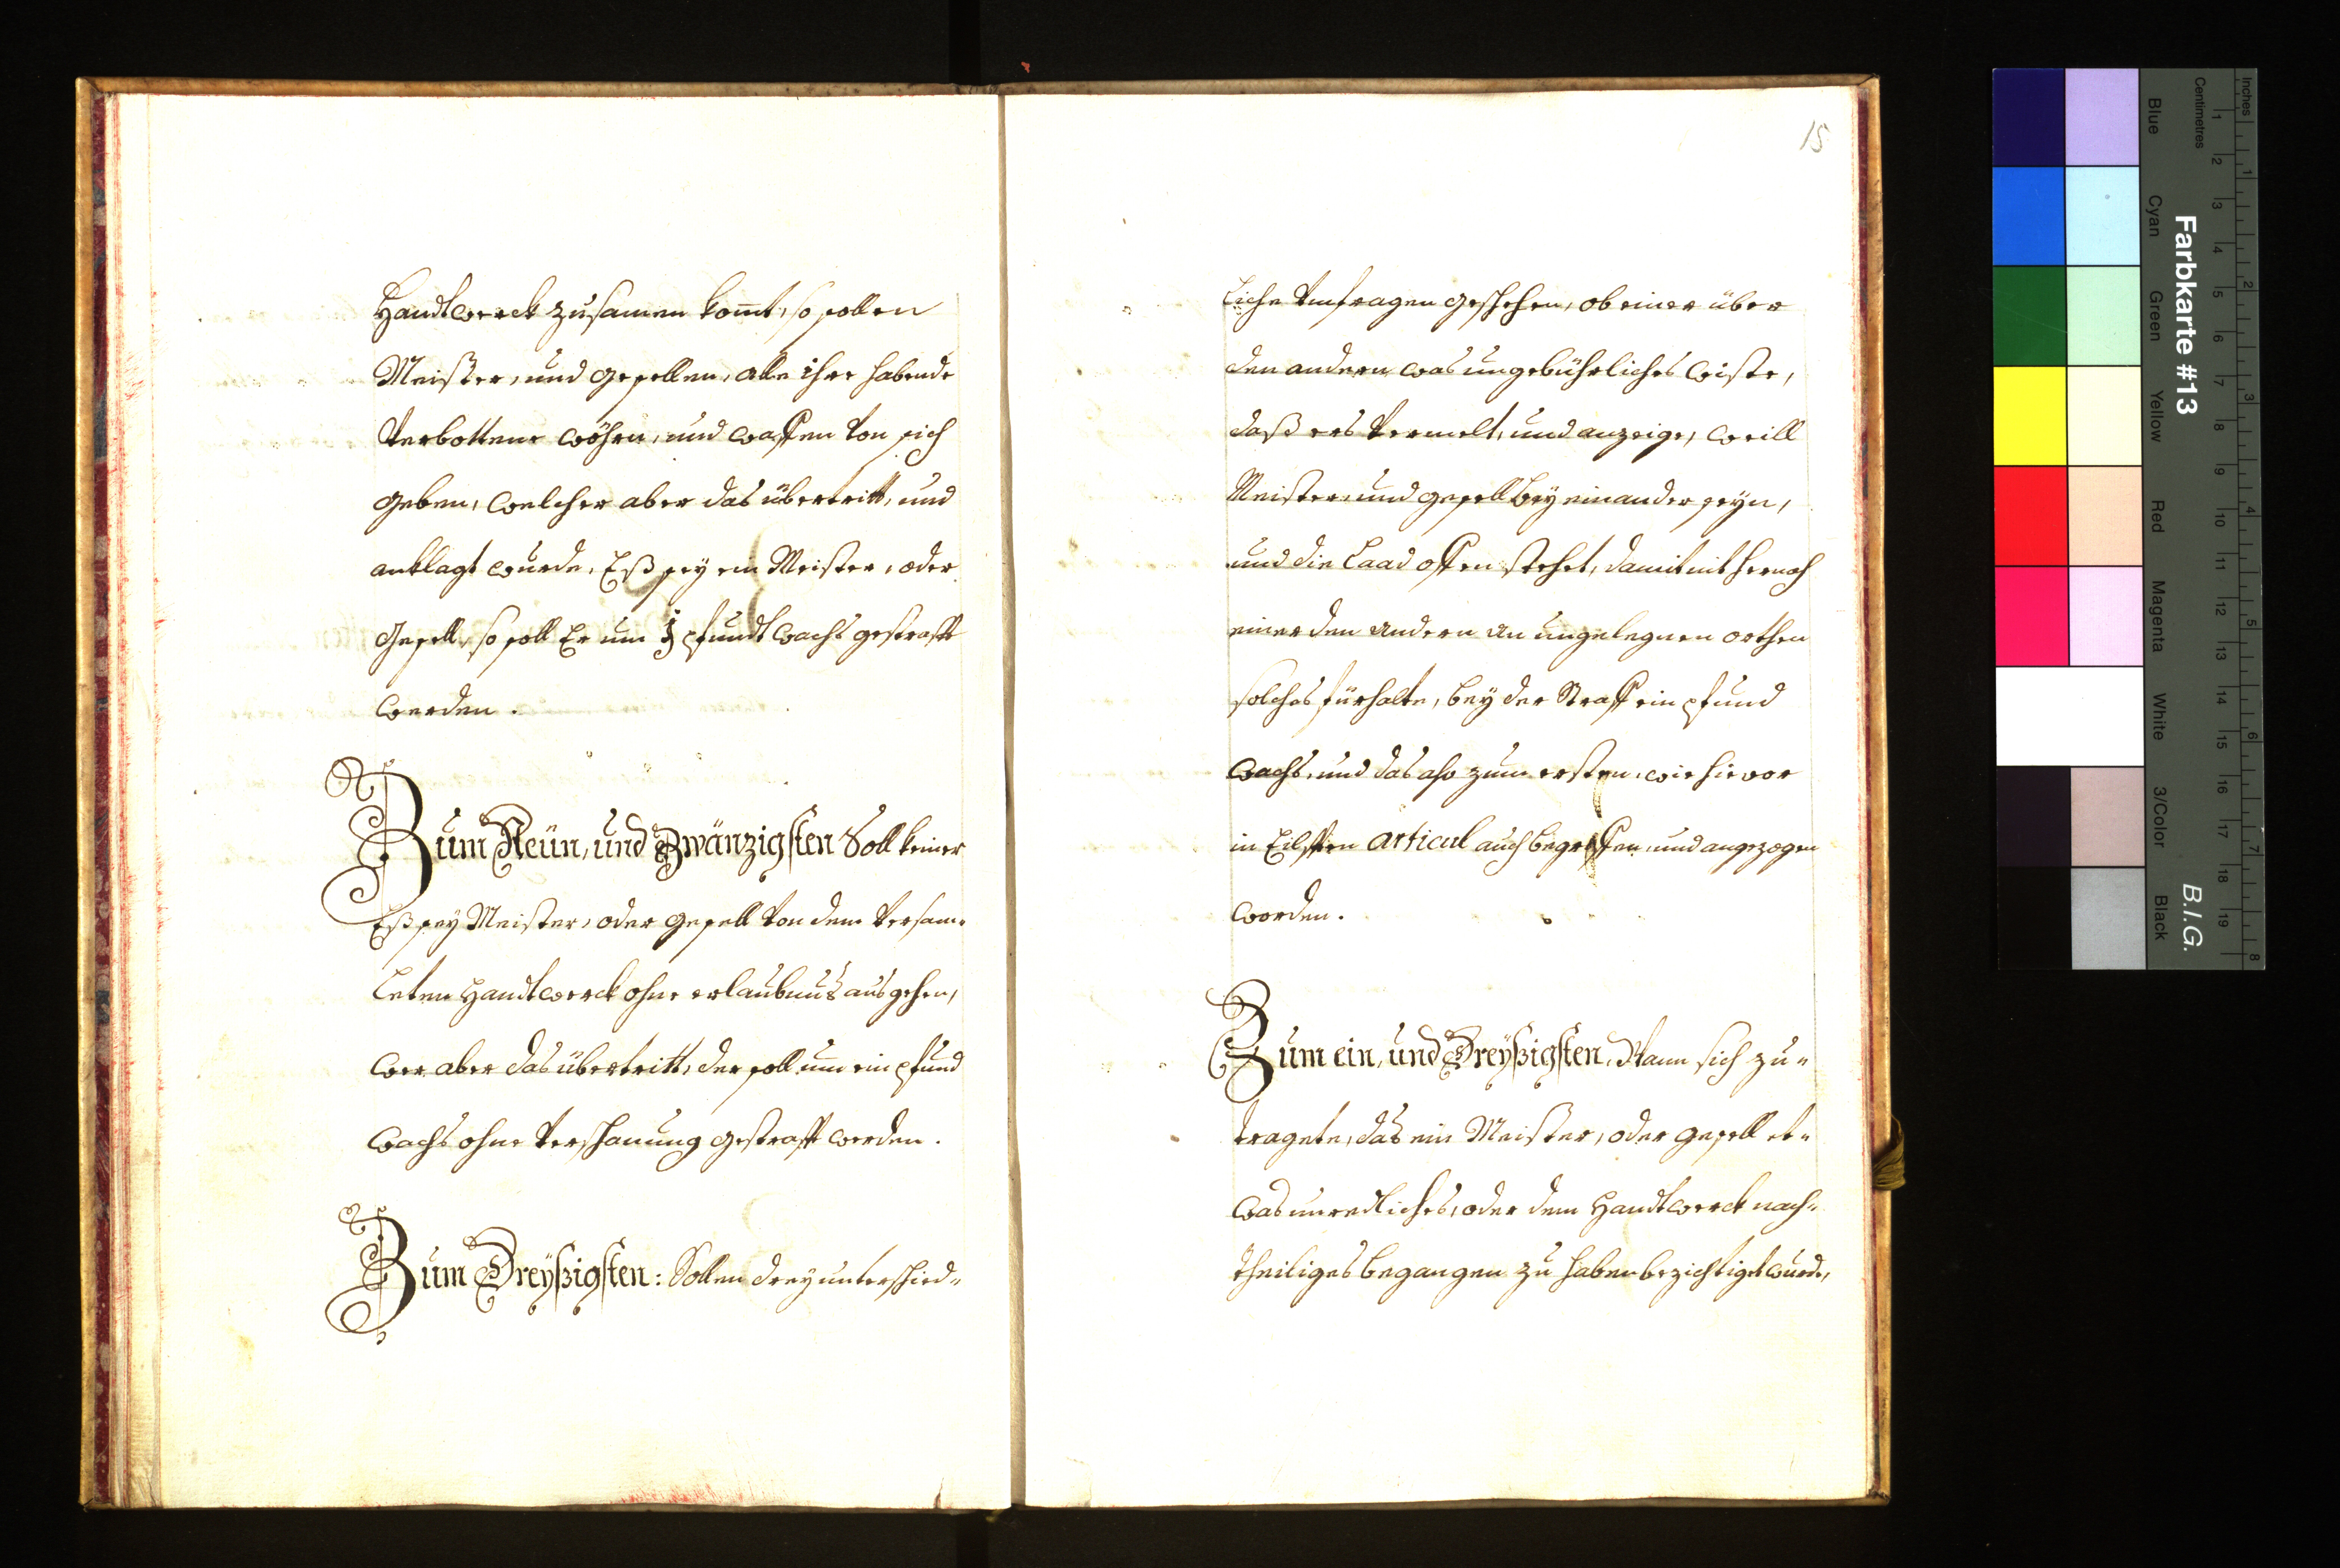 Handtwerck zusamen kom̅t, so sollen
Meister, und gesellen, alle ihre habende
verbottene wöhren, und waffen von sich
geben, welcher aber das übertritt, und
anklagt wurde, Eß sey ein Meister, oder
Gesell, so soll Er um 1 pfundt wachs gestrafft
werden.
Zum Neün, und Zwänzigsten Soll keiner
Eß sey Meister, oder gesell von dem versam-
leten Handtwerck ohne erlaubnus ausgehen,
wer aber das übertritt, der soll um ein pfund
wachs ohne verschanung gestrafft werden.
Zum Dreyßigsten: Sollen drey unterschied-
15
liche umfragen geschehen, ob einer über
den andern was ungebührliches wiste,
daß ers vermelt, und anzeige, weill
Meister, und gesell bey einander seyn,
und die Laad offen stehet, damit nit hernach
einer den andern an ungelegnen orthen
solches fürhalte, bey der Straff ein pfund
wachs, und das also zum ersten, wie hievor
in Eilfften articul auch begriffen, und angezogen
worden.
Zum ein, und Dreyßigsten, Wann sich zu-
tragete, das ein Meister, oder gesell et-
was unredliches, oder dem Handtwerck nach-
theiliges begangen zu haben bezichtiget wurde,
Inches
Centimetres
1 2 3 4 5 6 7 8
1 2 3 4 5 6 7 8 9 10 11 12 13 14 15 16 17 18 19
Farbkarte #13
B.I.G.
Blue
Cyan
Green
Yellow
Red
Magenta
White
3/Color
Black